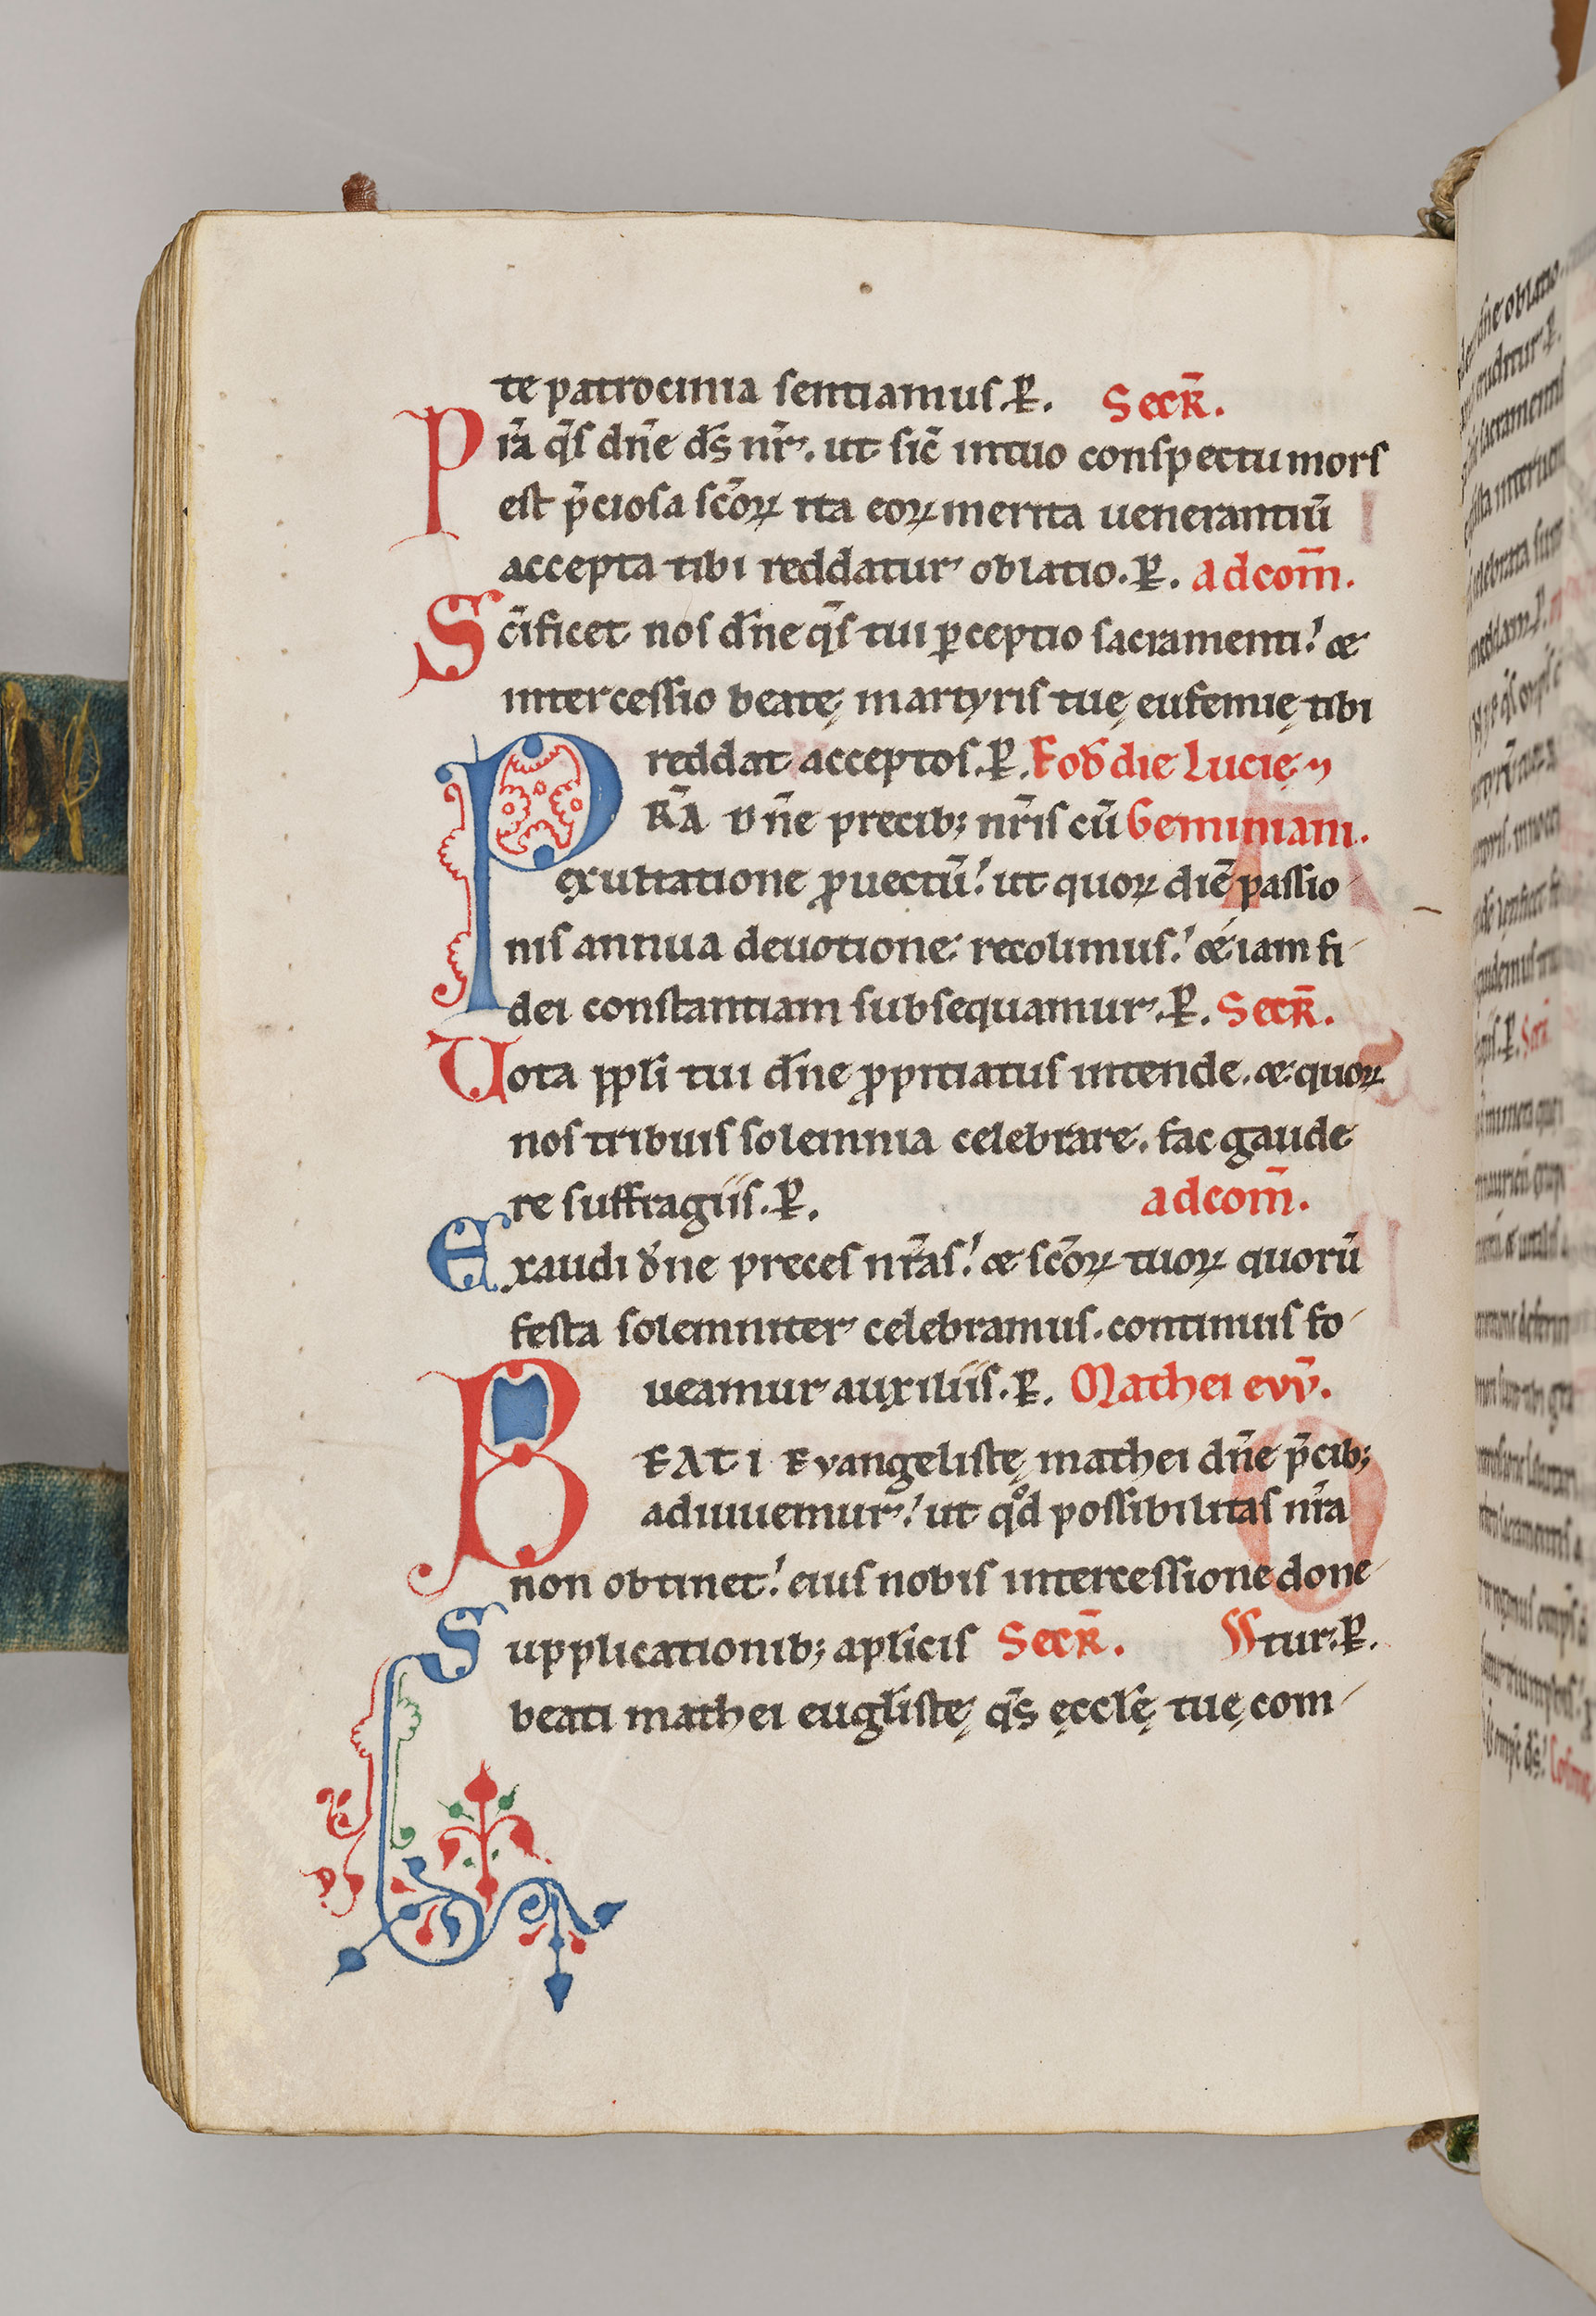 te patrocinia sentiamus. P̱. Secr̄.
Pr̄a qs̄ dn̄e ds̄ nr̄. ut sic̄ in tuo conspectu mors
est p̄ciosa sc̄oꝝ ita eoꝝ merita uenerantiū
accepta tibi reddatur oblatio. P̱. ad com̄.
Sc̄ificet nos dn̄e qs̄ tui ꝑceptio sacramenti! &
intercessio beatę martyris tuę eufemię tibi
reddat acceptos. P̱. Eod̄ die Lucię ⁊
PR̄A Dn̄e precib; nr̄is cū Geminiani.
exultatione ꝓuectū! ut quoꝝ diē passio
nis annua deuotione recolimus! & iam fi
dei constantiam subsequamur. P̱. Secr̄.
Uota ppl̄i tui dn̄e ꝓpitiatus intende. & quoꝝ
nos tribuis solemnia celebrare. fac gaude
re suffragiis. P̱. ad com̄.
Exaudi dn̄e preces nr̄as! & sc̄oꝝ tuoꝝ quorū
festa solemniter celebramus. continuis fo
ueamur auxiliis. P̱. Mathei ev̄v.
BEATI Evangelistę mathei dn̄e p̄cib;
adiuuemur! ut qd̄ possibilitas nr̄a
non obtinet! eius nobis intercessione done
Supplicationib; apl̄icis Secr̄. tur. P̱.
beati mathei eugl̄istę qs̄ ęccl̄ę tuę com